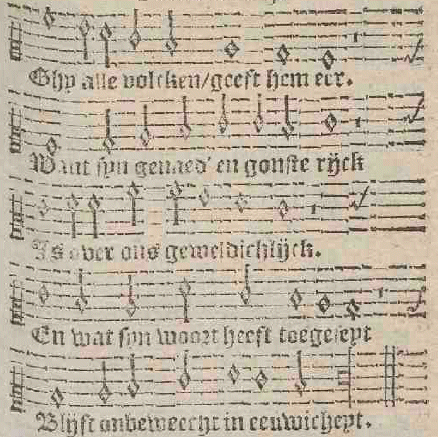 Ghy alle volcken/geeft hem eer.
Want syn genaed' en gonste rijck
Is over ons geweldichlijck.
En wat syn woort heeft toegeseyt
Blijft onbeweecht in eeuwicheyt.